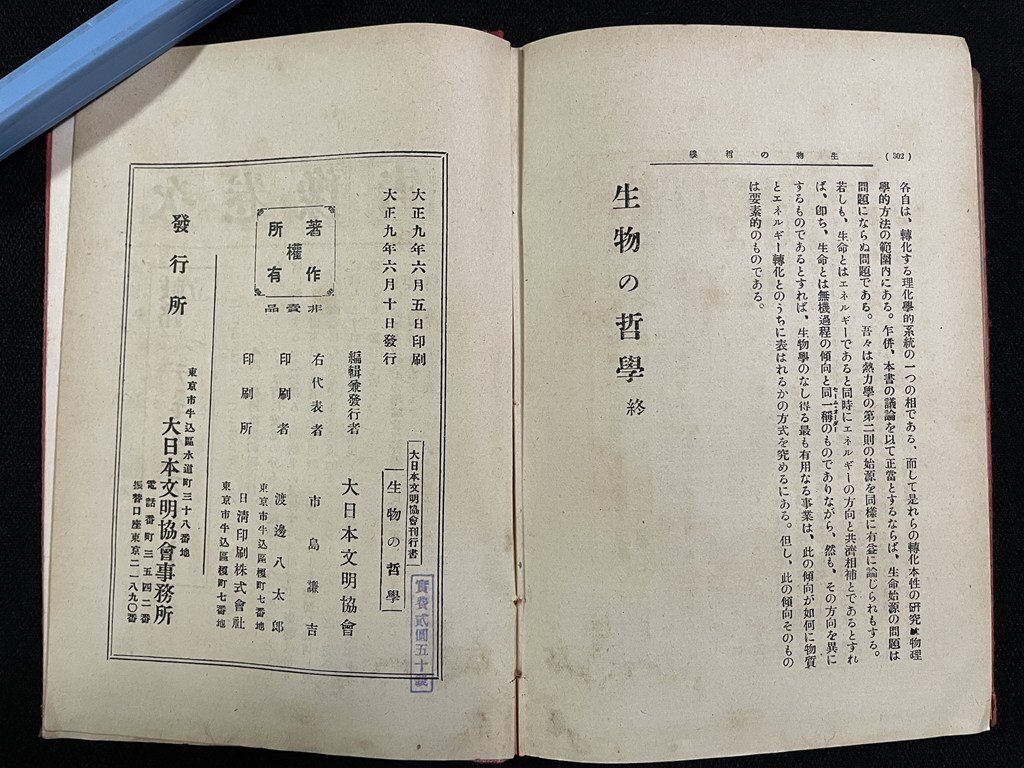 (302)
生物の哲學
各自は、轉化する理化學的系統の一つの相である、而して是れらの轉化本性の研究は物理
學的方法の範圍內にある。乍併、本書の議論を以て正當とするならば、生命始源の問題は
問題にならぬ問題である。吾々は熱力學の第二則の始源を同樣に有益に論じられもする。
若しも、生命とはエネルギーであると同時にエネルギーの方向と共濟相補とであるとすれ
ば、卽ち、生命とは無機過程の傾向と同一稱のものでありながら、然も、その方向を異に
セーム・オーダー
するものであるとすれば、生物學のなし得る最も有用なる事業は、此の傾向が如何に物質
とエネルギー轉化とのうちに表はれるかの方式を究めるにある。但し、此の傾向そのもの
は要素的のものである。
生物の哲學 終
大正九年六月五日印刷
大正九年六月十日發行
著作
權
所有
非賣品
大日本文明協會刊行書
生物の哲學
實費貳圓五十錢
編輯兼發行者 大日本文明協會
右代表者 市島謙吉
印刷者 渡邊八太郎
東京市牛込區榎町七番地
印刷所 日淸印刷株式會社
東京市牛込區榎町七番地
發行所
東京市牛込區水道町三十八番地
大日本文明協會事務所
電話番町三五四二番
振替口座東京二一八九〇番